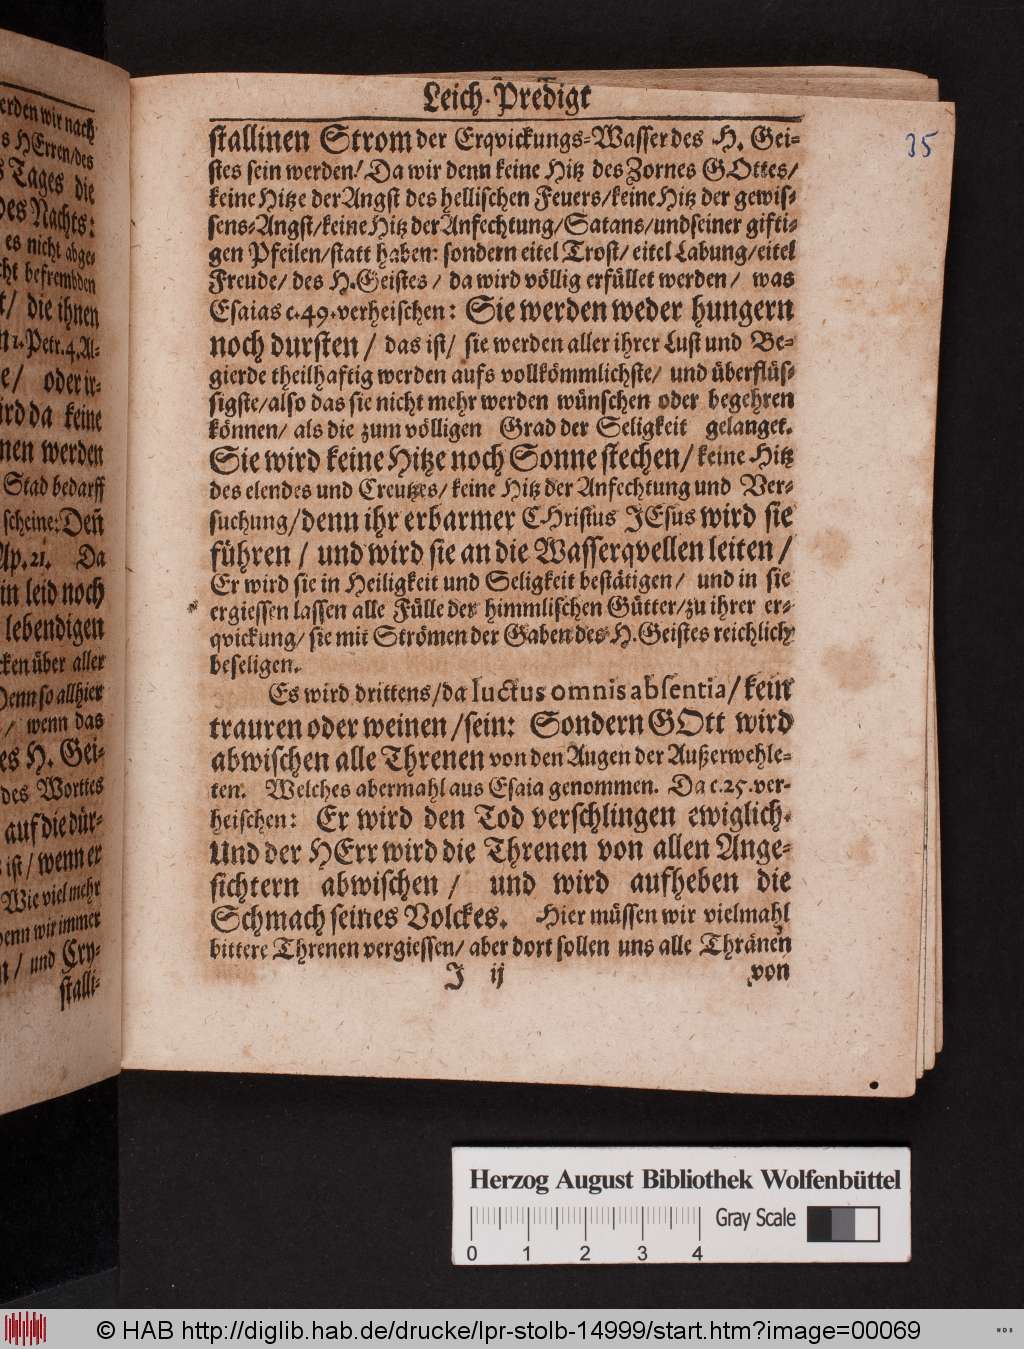 erden wir nach
s HErren/des
s Tages die
des Nachts:
es nicht abge-
cht befrembden
t/ die ihnen
n 1. Petr. 4. Al-
e/ oder ir-
ird da keine
nen werden
Stad bedarff
scheine: Deñ
Ap. 21. Da
in leid noch
lebendigen
cken über aller
Denn so allhier
/ wenn das
es H. Gei-
des Worttes
auf die dür-
ist/ wenn er
Wie viel mehr
denn wir immer
n/ und Cry-
stalli-
Leich-Predigt
35
stallinen Strom der Erqvickungs-Wasser des H. Gei-
stes sein werden! Da wir denn keine Hitz des Zornes GOttes/
keine Hitze der Angst des hellischen Feuers/keine Hitz der gewis-
sens-Angst/keine Hitz der Anfechtung/Satans/und seiner gifti-
gen Pfeilen/statt haben: sondern eitel Trost/ eitel Labung/eitel
Freude/ des H. Geistes/ da wird völlig erfüllet werden/ was
Esaias c. 49. verheischen: Sie werden weder hungern
noch dursten/ das ist/ sie werden aller ihrer Lust und Be-
gierde theilhaftig werden aufs vollkömmlichste/ und überflüs-
sigste/also das sie nicht mehr werden wünschen oder begehren
können/ als die zum völligen Grad der Seligkeit gelanget.
Sie wird keine Hitze noch Sonne stechen/ keine Hitz
des elendes und Creutzes/ keine Hitz der Anfechtung und Ver-
suchung/denn ihr erbarmer CHristus JEsus wird sie
führen/ und wird sie an die Wasserqvellen leiten/
Er wird sie in Heiligkeit und Seligkeit bestätigen/ und in sie
ergiessen lassen alle Fülle der himmlischen Gütter/zu ihrer er-
qvickung/ sie mit Strömen der Gaben des H. Geistes reichlich
beseligen.
Es wird drittens/da luctus omnis absentia/ kein
trauren oder weinen/sein: Sondern GOtt wird
abwischen alle Threnen von den Augen der Außerwehle-
ten. Welches abermahl aus Esaia genommen. Da c. 25. ver-
heischen: Er wird den Tod verschlingen ewiglich.
Und der HErr wird die Threnen von allen Ange-
sichtern abwischen/ und wird aufheben die
Schmach seines Volckes. Hier müssen wir vielmahl
bittere Threnen vergiessen/ aber dort sollen uns alle Thränen
J ij von
Herzog August Bibliothek Wolfenbüttel
Gray Scale
0 1 2 3 4
© HAB http://diglib.hab.de/drucke/lpr-stolb-14999/start.htm?image=00069